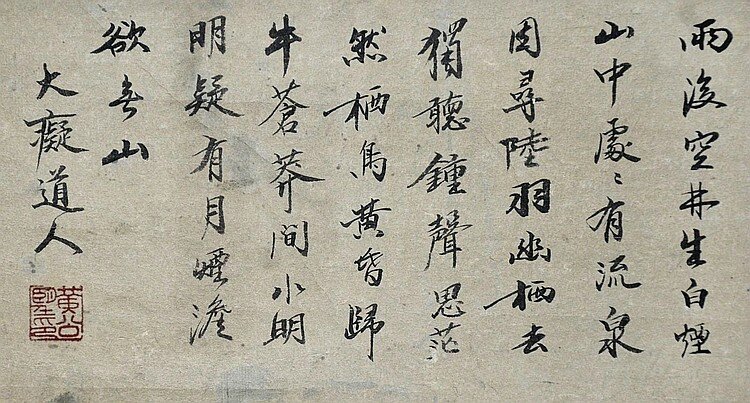 雨後空井生白煙
山中處〻有流泉
因尋陸羽幽栖去
獨聽鍾聲思茫
然栖鳥黃昏歸
牛蒼莽間水明
明疑有月煙澹
欲無山
大癡道人
黃公望印